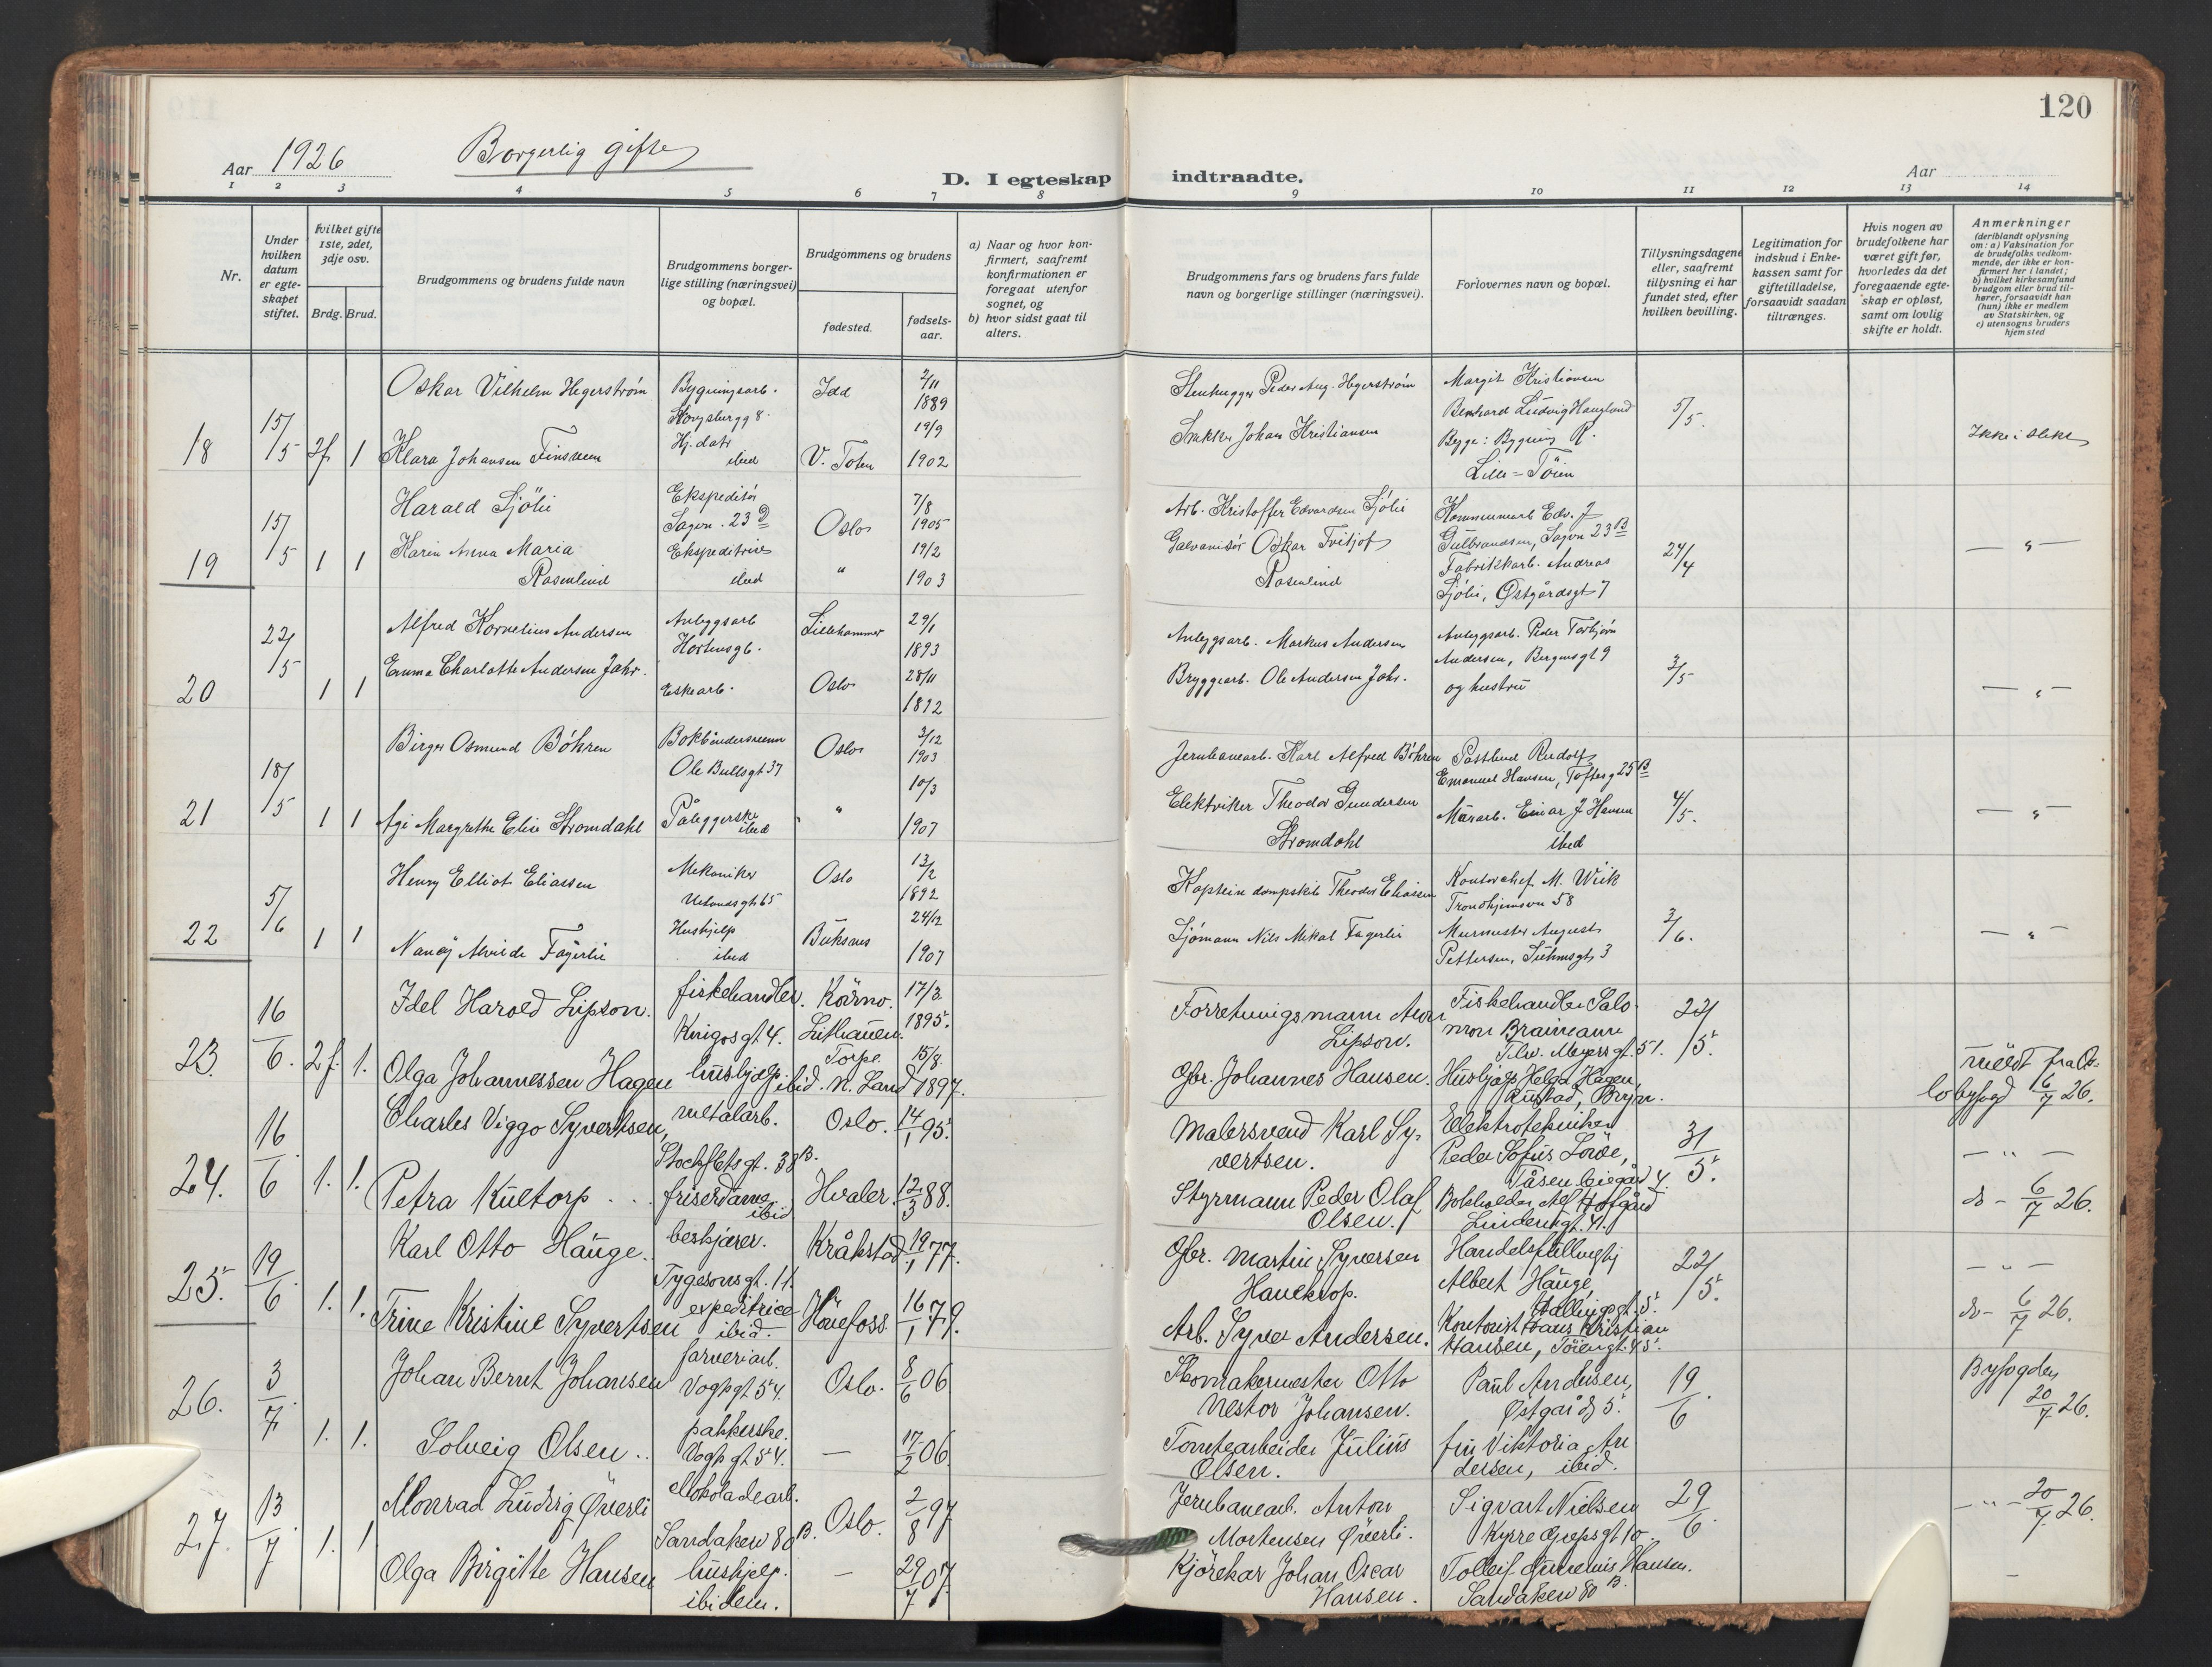 120
Aar 1926
Borgerlig gifte
D. I egteskap indtraadte.
Aar
1 2 3 4 5 6 7 8 9 10 11 12 13 14
Nr.
Under hvilken datum er egteskapet stiftet.
Hvilket gifte 1ste, 2det, 3dje osv.
Brdg. Brud.
Brudgommens og brudens fulde navn
Brudgommens borgerlige stilling (næringsvei) og bopæl.
Brudgommens og brudens
fødested.
fødselsaar.
a) Naar og hvor konfirmert, saafremt konfirmationen er foregaat utenfor sognet, og
b) hvor sidst gaat til alters.
Brudgommens fars og brudens fars fulde navn og borgerlige stillinger (næringsvei).
Forlovernes navn og bopæl.
Tillysningsdagene eller, saafremt tillysning ei har fundet sted, efter hvilken bevilling.
Legitimation for indskud i Enkekassen samt for giftetilladelse, forsaavidt saadan tiltrænges.
Hvis nogen av brudefolkene har været gift før, hvorledes da det foregaaende egteskap er opløst, samt om lovlig skifte er holdt.
Anmerkninger
(deriblandt oplysning om: a) Vaksination for de brudefolks vedkommende, der ikke er konfirmert her i landet; b) hvilket kirkesamfund brudgom eller brud tilhører, forsaavidt han (hun) ikke er medlem av Statskirken, og c) utensogns bruders hjemsted
18 15/5 2f 1
Oskar Vilhelm Hegerstrøm
Bygningsarb.
Idd
2/11 1889
Klara Johansen Finsveen
Hj. datr ibid
V. Toten
19/9 1902
Stenhugger Peder Aug. Hegerstrøm
Snekker Johan Kristiansen
Margit Kristiansen
Bernhard Ludvig Haugland
Lille-Tøien
5/5.
Ikke i slekt
19 15/5 1 1
Harald Sjölie
Ekspeditör
Sagvn. 23 D
Oslo
7/8 1905
Karin Anna Maria
Rosenlind
Ekspeditrise
ibid
"
19/2 1903
Arb. Kristoffer Edvardsen Sjölie
Galvanisör Oskar Fritjof
Rosenlind
Kommunearb Edv. J
Gulbrandsen, Sagvn 23 B
Fabrikkarb. Andreas
Sjölie, Østgårdsgt 7
24/4
— " —
20 22/5 1 1
Alfred Kornelius Andersen
Anleggsarb
Lillehammer
29/1 1893
Emma Charlotte Andersen Jahr.
Eskearb.
Oslo
28/11 1892
Anlegsarb. Markus Andersen
Bryggearb. Ole Andersen Jahr.
Anlegsarb. Peder Torbjörn
Andersen, Bergensgt 9
og hustru
3/5
— " —
21 18/5 1 1
Birger Osmund Böhren
Bokbindersvenn
Ole Bullsgt 37
Oslo
3/12 1903
Agi Margrethe Elise Stromdahl
Påleggerske
ibid
"
10/3 1907
Jernbanearb. Karl Alfred Böhren
Elektriker Theodor Gundersen
Stromdahl
Postbud Rudolf
Emanuel Hansen, Toftesg 25 B
Murarb. Einar J Hansen
ibid
4/5.
— " —
22 5/6 1 1
Henry Elliot Eliassen
Mekaniker
Uelandsgt 65
Oslo
13/2 1892
Nancy Alvilde Fagerlie
Hushjelp
ibid
Buksnes
24/12 1907
Kaptein dampskib Theodor Eliassen
Sjömann Nils Mikal Fagerlie
Kontorchef M. Wiik
Trondhjemsvn 58
Murmester August
Pettersen, Suhmsgt 3
3/6.
— " —
23. 16/6. 2f. 1.
Idel Harold Lipson.
fiskehandler.
Krigsgt 4.
Kovno. Lithauen.
17/3. 1895.
Olga Johannessen Hagen
hushjelp. ibid.
Torpe. N. Land
15/8. 1897.
Forretningsmann
Lipson.
Gbr. Johannes Hansen.
Fiskehandler Salomon Braimann
Thv. Meyersgt. 51.
Hushjelp Helga Hagen,
Rustad, Bryn.
22/5.
meldt fra Oslo byfogd 6/7 26.
24. 16/6 1. 1.
Charles Viggo Syvertsen,
metalarb.
Stockfletsgt. 38 B.
Oslo.
14/1 95.
Petra Kultorp...
friserdame.
ibid
Hvaler.
12/3 88.
Malersvend Karl Syvertsen.
Styrmann Peder Olaf
Olsen.
Elektrotekniker
Peder Sofus Löwe,
Tåsen leiegård 4.
Bokholder Alf Hofgård
Lindernsgt. 41.
31/5.
— " —
do - 6/7 26.
25. 19/6 1. 1.
Karl Otto Hauge.
beskjærer.
Tygesonsgt. 11.
Kråkstad.
19/1 77.
Trine Kristine Syvertsen
expeditrice
ibid.
Hönefoss
16/1 79.
Gbr. Martin Syversen
Haueksop.
Arb. Syver Andersen.
Handelsfullmegtig
Albert Hauge,
Hallingsgt. 5.
Kontorist Hans Kristian
Hansen, Töiengt. 45.
22/5.
— " —
do - 6/7 26.
26. 3/7. 1. 1.
Johan Bernt Johansen
farveriarb.
Vogtsgt 54.
Oslo.
8/6 06
Solveig Olsen..
pakkerske.
Vogtsgt 54.
—
17/2 06.
Skomakermester Otto
Nestor Johansen.
Tomtearbeider Julius
Olsen.
Paul Andersen,
Østgårdsg 5.
fru Viktoria Andersen, ibid.
19/6.
Byfogden
20/7 26.
27. 13/7. 1. 1
Monrad Ludvig Øverli
chokoladearb.
Sandakerv 80 B.
Oslo.
2/8 97
Olga Birgitte Hansen
hushjelp.
ibidem.
—
29/7 07.
Jernbanearb. Anton
Mortensen Øverli.
Kjörekar Johan Oscar
Hansen.
Sigvart Nielsen
Kyrre Grepsgt 10.
Tolleif Hansen.
Sandakerv 80 B.
29/6.
— " — 20/7. 26.
—